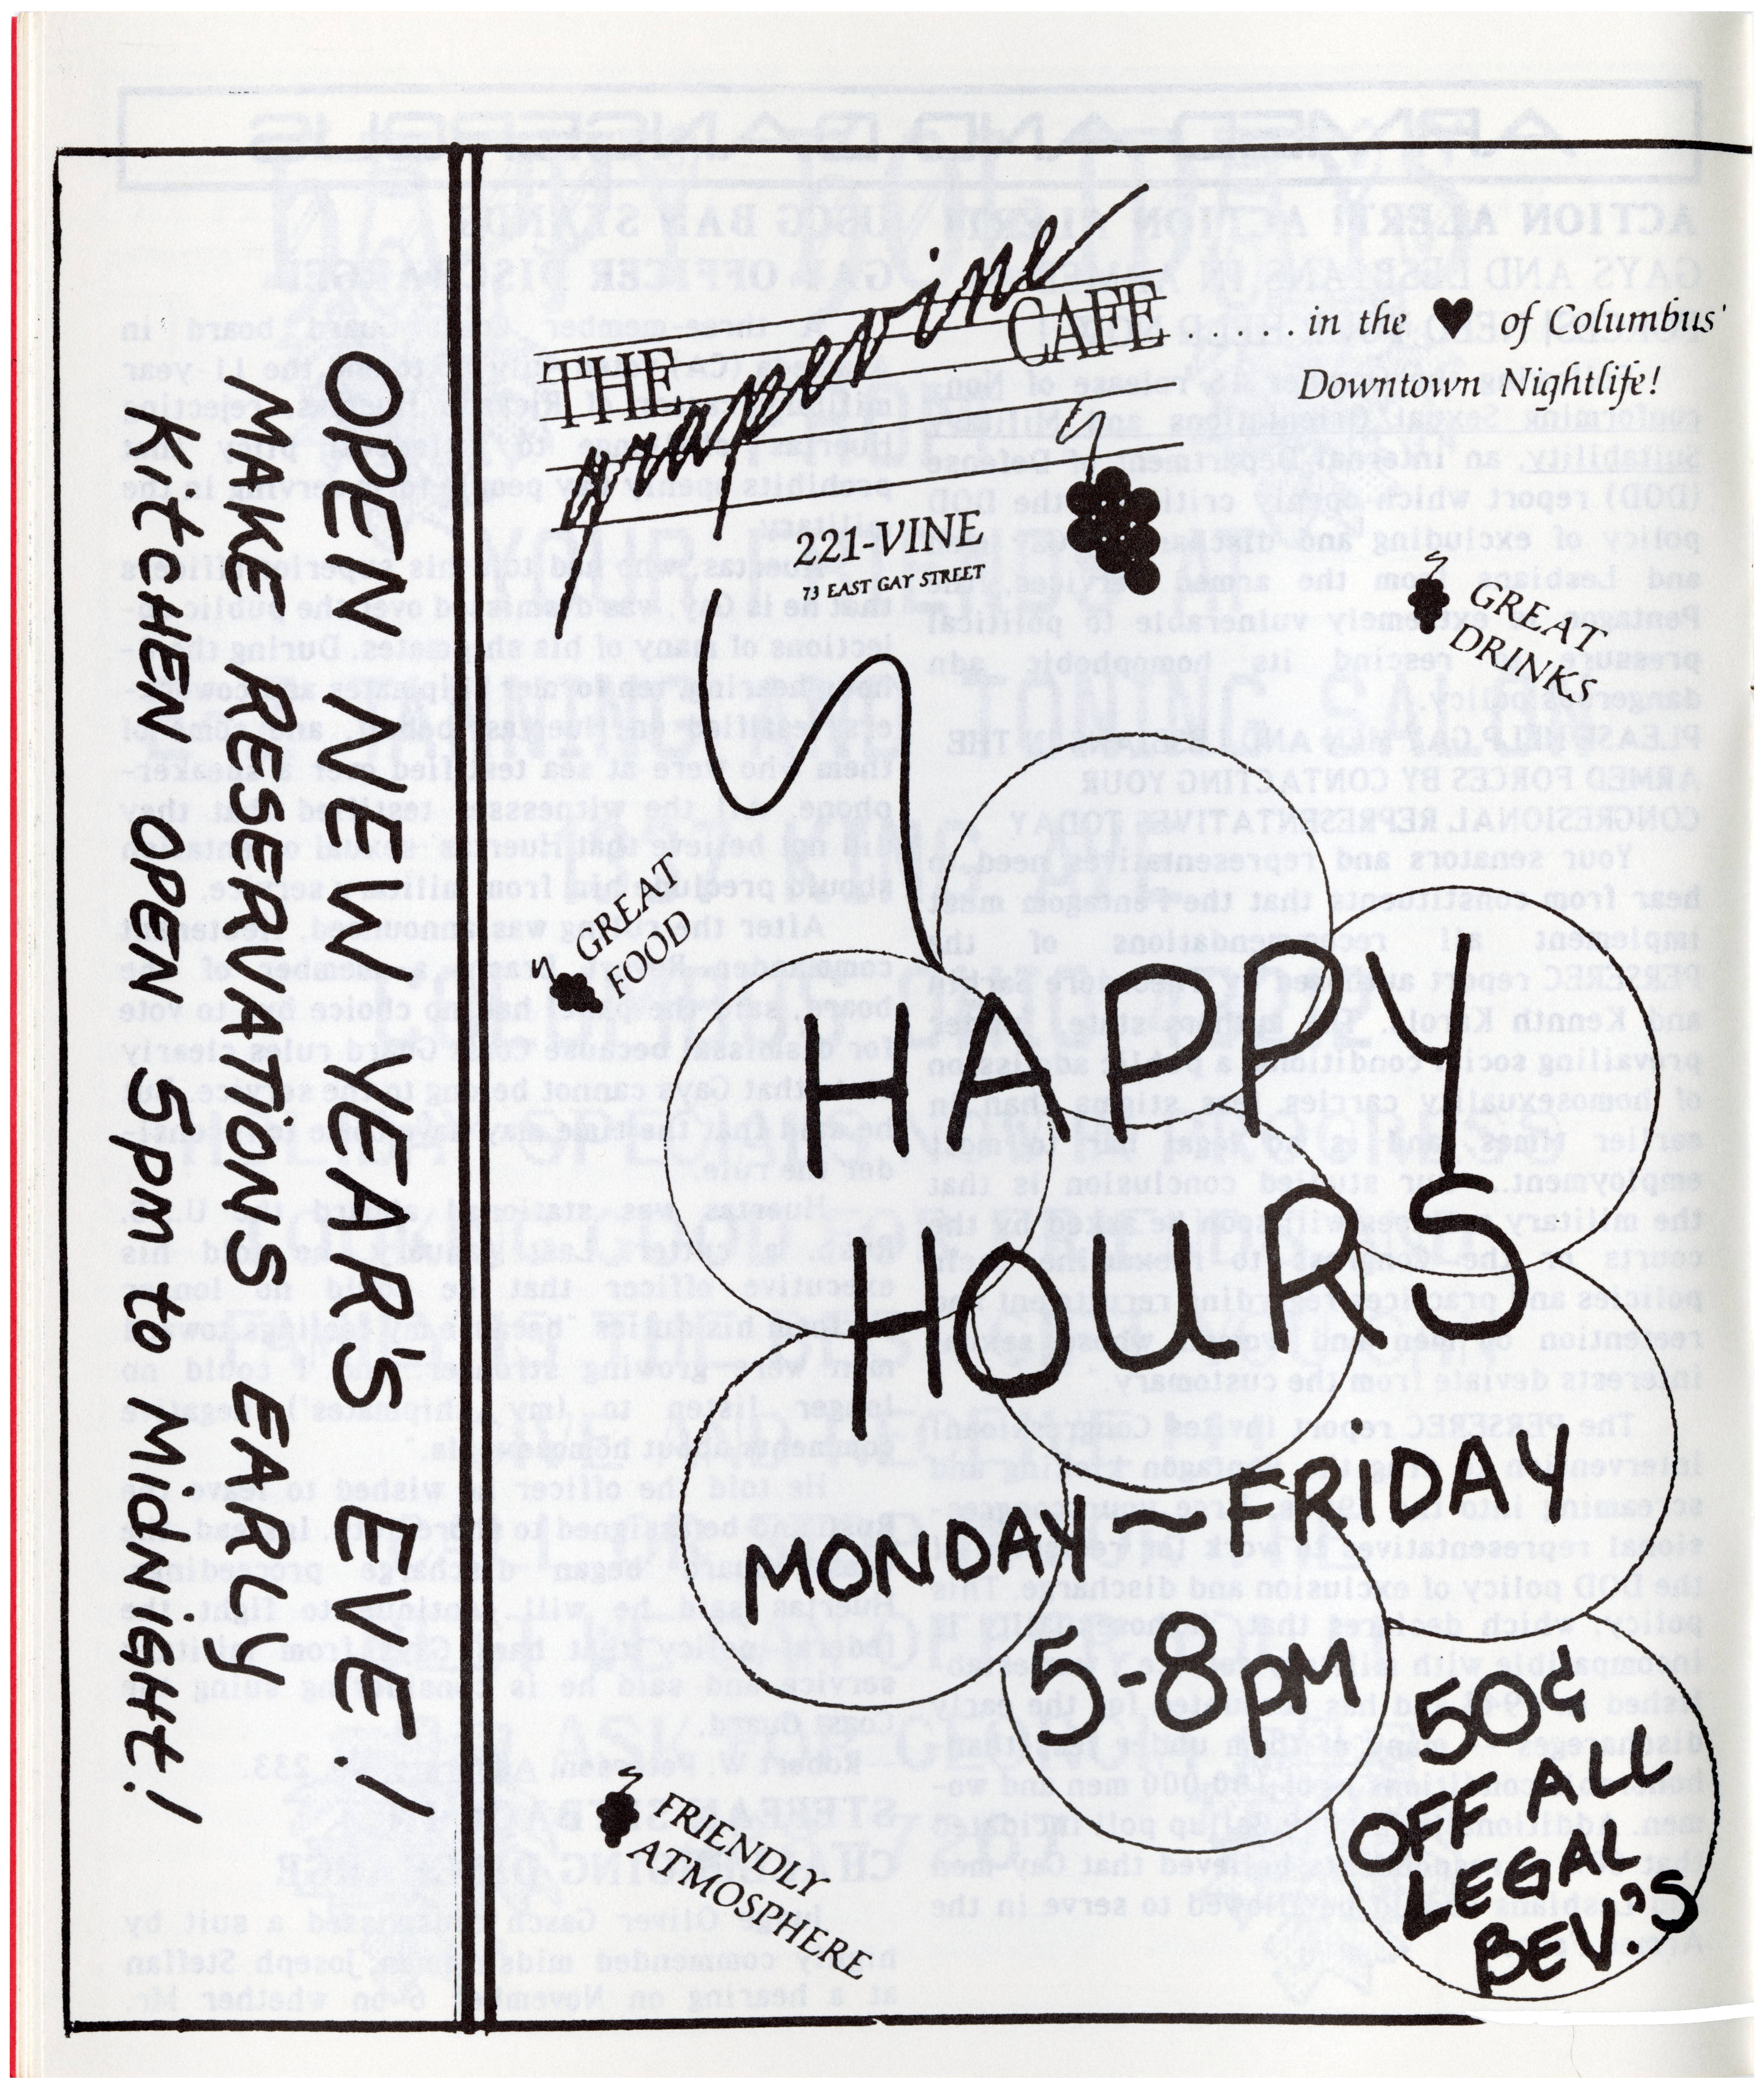 OPEN NEW YEAR'S EVE!
MAKE RESERVATIONS EARLY
KitCHEN OPEN 5pm to MidNiGHT!
THE grapevine CAFE
......in the ♥ of Columbus'
Downtown Nightlife!
221-VINE
73 EAST GAY STREET
GREAT
DRINKS
GREAT
FOOD
HAPPY
HOURS
MONDAY~FRiDAY
5-8pm
50¢
OFF ALL
LEGAL
BEV.'S
FRIENDLY
ATMOSPHERE